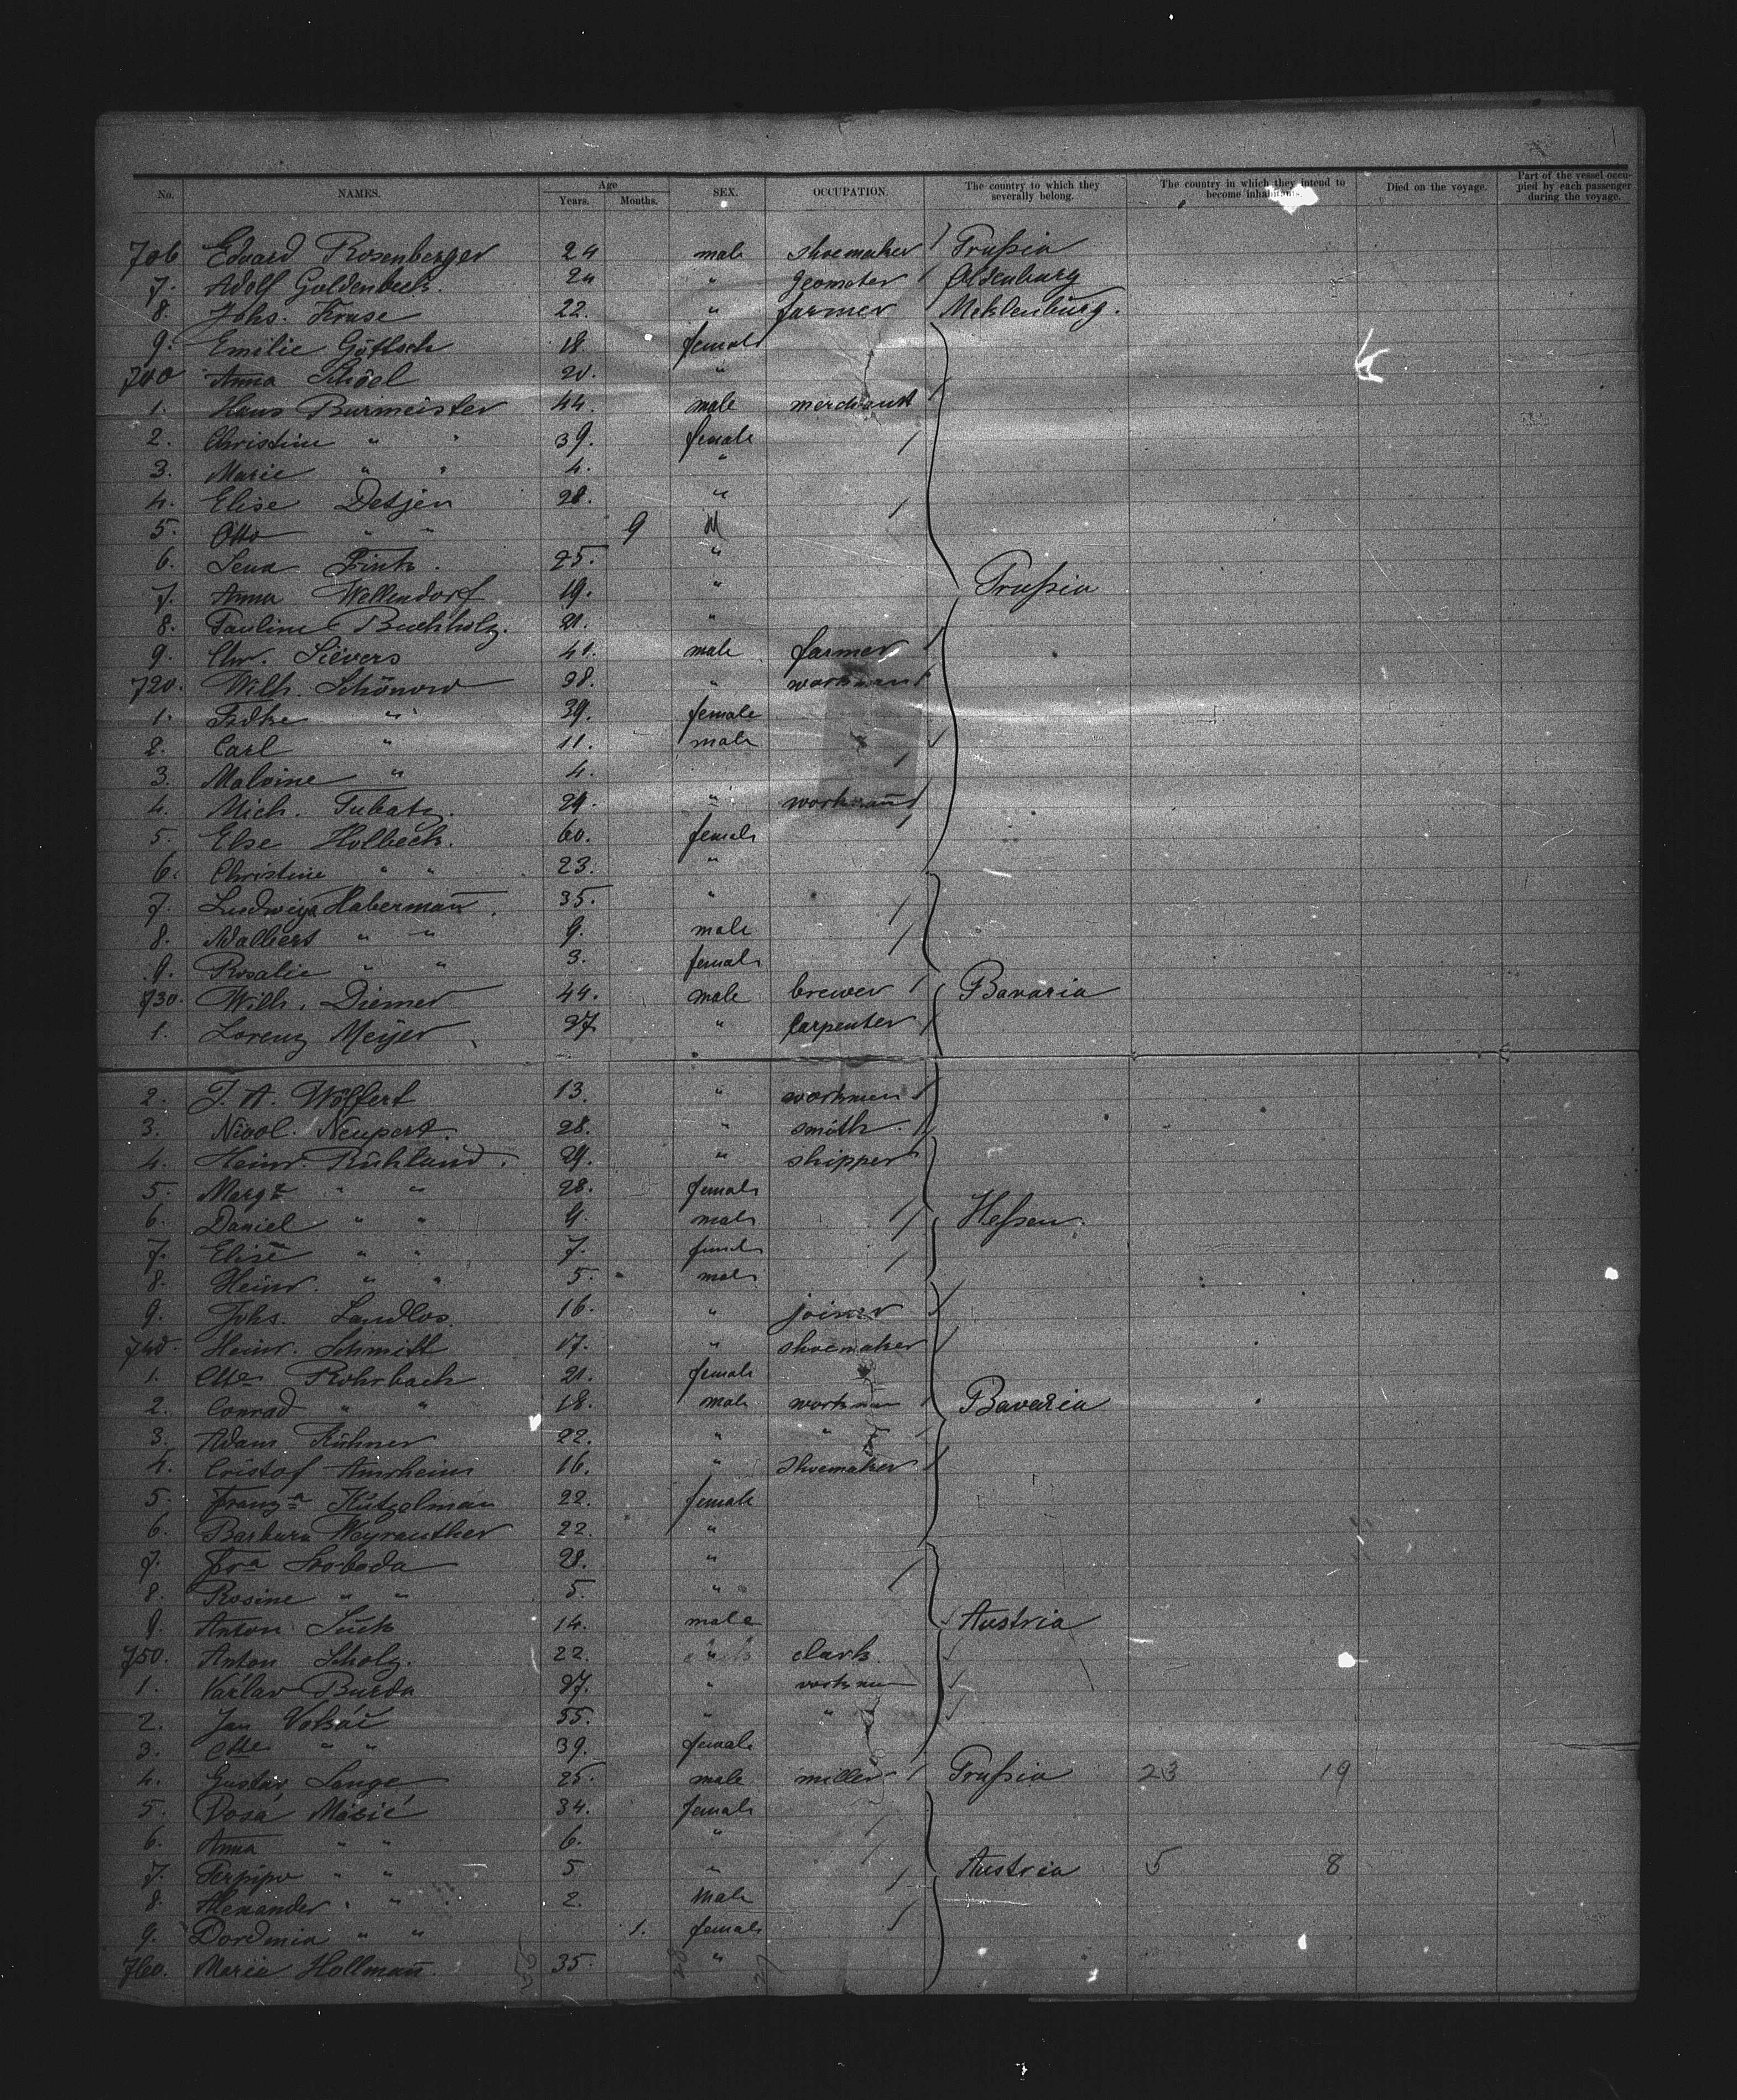 No. NAMES. Age Years. Months. SEX. OCCUPATION. The country to which they severally belong. The country in which they intend to become inhabitants. Died on the voyage. Part of the vessel occupied by each passenger during the voyage.
706 Eduard Rosenberger 24 male shoemaker Prußia
7. Adolf Goldenbeck. 24 " geometer Oldenburg
8. Johs. Kruse 22. " farmer Meklenburg.
9. Emilie Göttsch 18 female
710 Anna 20. "
1. Hans Burmeister 44. male merchant
2. Christine " " 39. female
3. Marie " " 4. "
4. Elise Detjen 28. "
5. Otto " " 9 M
6. Lena Fink. 25. "
7. Anna Wellendorf 19. " Prußia
8. Pauline Buchholz. 21. "
9. Chr. Sievers 41. male farmer
720. Wilh. Schönow 38. " workman
1. " 39. female
2. Carl " 11. male
3. Malvine " 4.
4. Mich. Tubatz. 24. " workmañ
5. Else Holbeck. 60. female
6. Christine " " 23. "
7. Ludwiga Habermañ. 35. "
8. Adalbert " " 9. male
9. Rosalie " " 3. female
730. Wilh. Diemer 44. male brewer Bavaria
1. Lorenz Meyer 27. " Carpenter
2. J. A. Wölfert 13. " workmen
3. Nicol. Neupert. 28. " smith.
4. Heinr. Rühland. 29. " shipper
5. Margt " " 28. female
6. Daniel " " 9. male Heßen.
7. Elise " " 7. female
8. Heinr. " " 5. male
9. Johs. Landlos. 16. " joiner
740. Heinr. Schmitt 17. " shoemaker
1. Rohrbach 21. female
2. Conrad " " 18. male workman Bavaria
3. Adam Kühner 22. " "
4. Cristof Amrhein 16. " Shoemaker
5. Franza Kützelman 22. female
6. Barbara Weyrauther 22. "
7. Fra Svoboda 28. "
8. Rosine " " 5. "
9. Anton 14. male Austria
750. Anton Scholz. 22. " clark
1. Václav Burda 27. " workman
2. Jan Vokáč 55. " "
3. " " 39. female
4. Gustav Lange 25. male miller Prußia 23 19
5. Rosa Másić 34. female
6. Anna " " 6. "
7. " " 5 " Austria 5 8
8. Alexander " " 2. Male
9. " " 1. female
760. Maria Hollmañ. 35. "